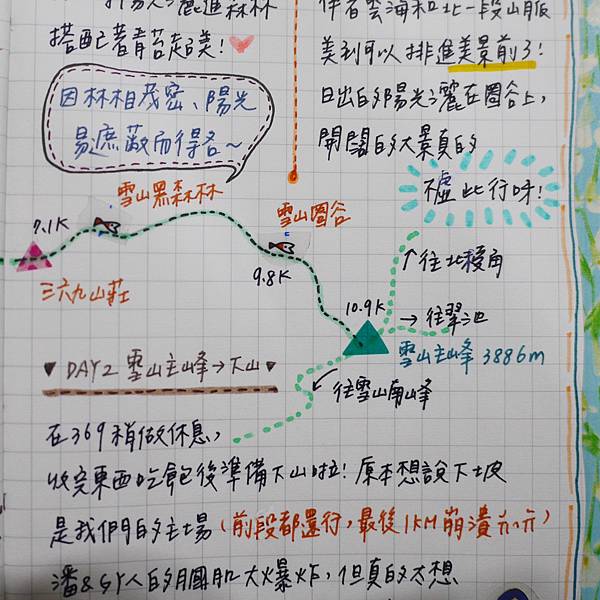 搭配著青苔超美!
伴著雲海和北一段山脈
美到可以排進美景前3!
日出的陽光灑在圈谷上,
開闊的大景真的
不虛此行呀!
因林相茂密、陽光
易遮蔽而得名~
雪山黑森林
雪山圈谷
7.1K
9.8K
10.9K
三六九山莊
↑往北稜角
→往翠池
雪山主峰 3886m
往雪山南峰
▼DAY2 雪山主峰→下山▼
在369稍做休息,
收完東西吃飽後準備下山啦!原本想說下坡
是我們的主場(前段都還行,最後1KM崩潰
潘&GY人的腿肌大爆炸,但真的太想